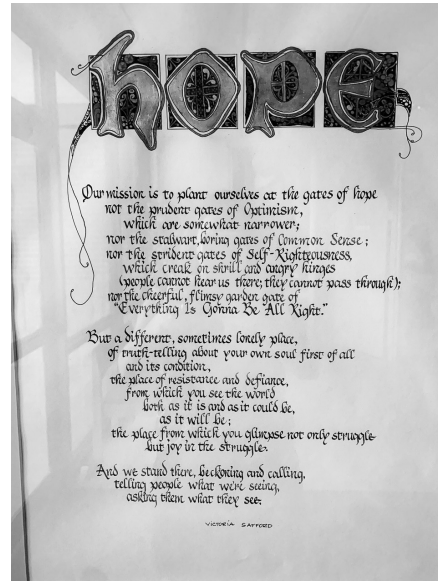 hope
Our mission is to plant ourselves at the gates of hope
not the prudent gates of Optimism,
which are somewhat narrower;
nor the stalwart, boring gates of Common Sense;
nor the strident gates of Self-Righteousness,
which creak on shrill and angry hinges
(people cannot hear us there; they cannot pass through);
nor the cheerful, flimsy garden gate of
"Everything Is Gonna Be All Right."
But a different, sometimes lonely place,
of truth-telling about your own soul first of all
and its condition,
the place of resistance and defiance,
from which you see the world
both as it is and as it could be,
as it will be;
the place from which you glimpse not only struggle
but joy in the struggle.
And we stand there, beckoning and calling,
telling people what we're seeing,
asking them what they see.
VICTORIA SAFFORD